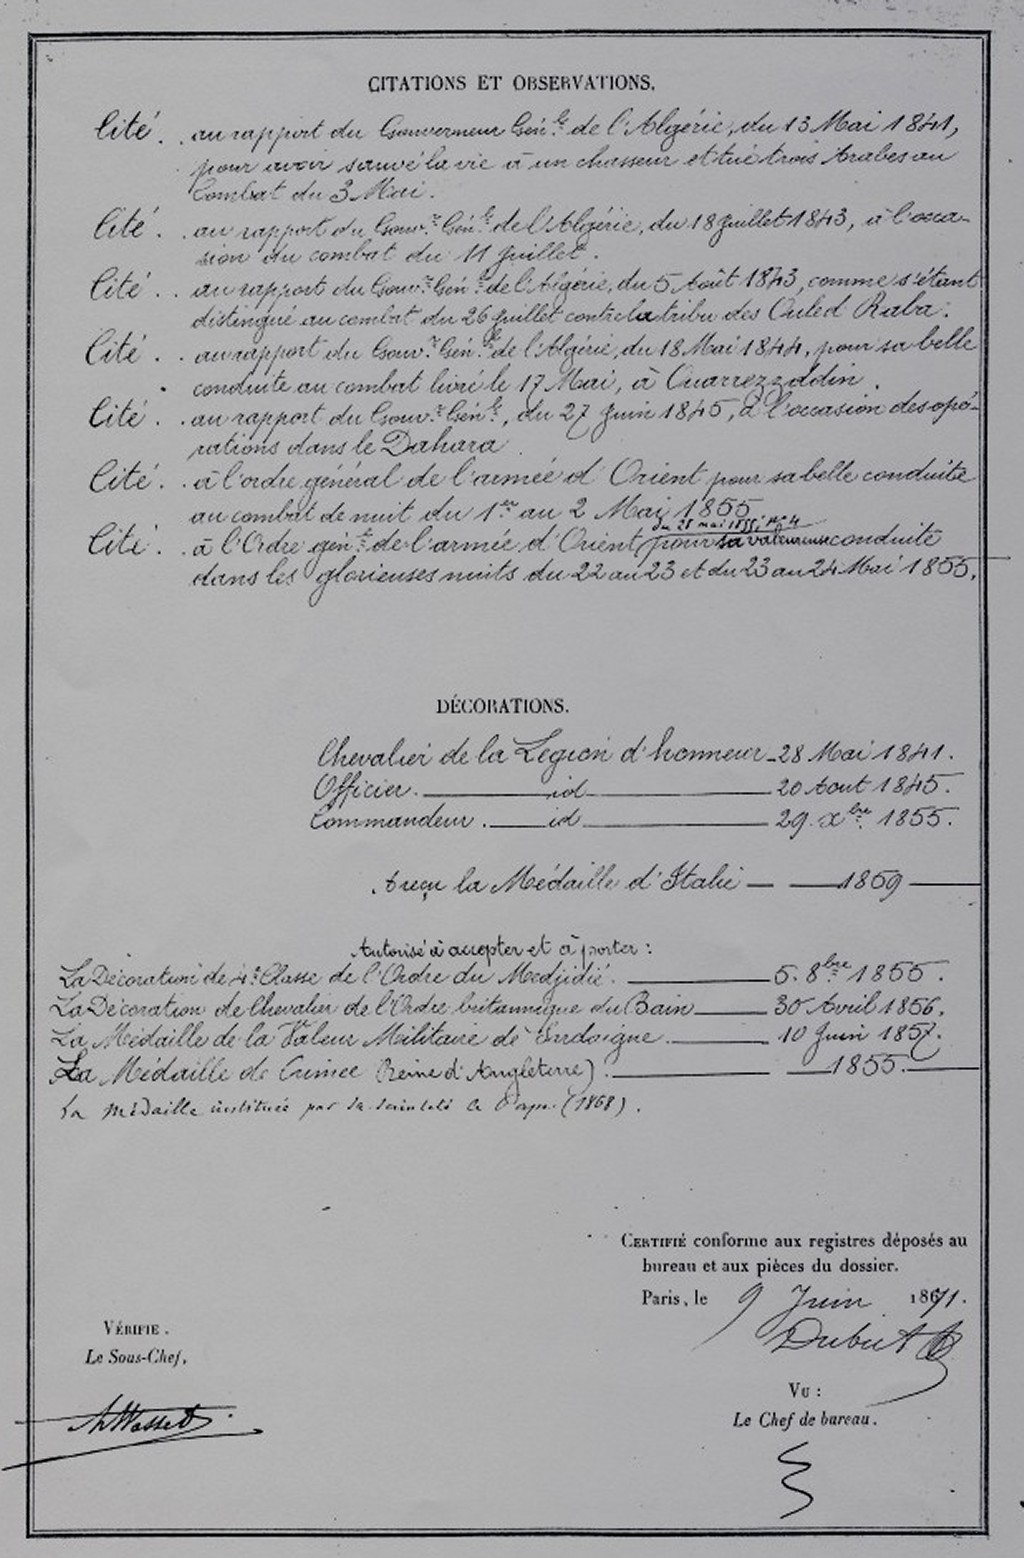 CITATIONS ET OBSERVATIONS.
Cité . . au rapport du Gouverneur Gén.le de l'Algérie, du 13 Mai 1841,
pour avoir sauvé la vie à un chasseur et tué trois Arabes au
Combat du 3 Mai.
Cité . . au rapport du Gouv.r Gén.le de l'Algérie, du 18 Juillet 1843, à l'occa-
sion du combat du 11 Juillet.
Cité . . au rapport du Gouv.r Gén.le de l'Algérie, du 5 Août 1843, comme s'étant
distingué au combat du 26 Juillet contre la tribu des Ouled Raba.
Cité . . au rapport du Gouv.r Gén.le de l'Algérie, du 18 Mai 1844, pour sa belle
conduite au combat livré le 17 Mai, à Ouarrezzddin.
Cité . . au rapport du Gouv.r Gén.le, du 27 Juin 1845, à l'occasion des opé-
rations dans le Dahara.
Cité . . à l'ordre général de l'armée d'Orient pour sa belle conduite
au combat de nuit du 1er au 2 Mai 1855
du 28 mai 1855, No 4
Cité . . à l'Ordre gén.le de l'armée d'Orient pour sa valeureuse conduite
dans les glorieuses nuits du 22 au 23 et du 23 au 24 Mai 1855.
DÉCORATIONS.
Chevalier de la Légion d'honneur 28 Mai 1841.
Officier. id 20 Aout 1845.
Commandeur. id 29. Xbre 1855.
A reçu la Médaille d'Italie 1859
Autorisé à accepter et à porter :
La Décoration de 4e Classe de l'Ordre du Medjidié. 5. 8bre 1855.
La Décoration de Chevalier de l'Ordre britannique du Bain 30 Avril 1856.
La Médaille de la Valeur Militaire de Sardaigne. 10 Juin 1857.
La Médaille de Crimée (Reine d'Angleterre). 1855.
La médaille instituée par sa sainteté le Pape (1868).
CERTIFIÉ conforme aux registres déposés au
bureau et aux pièces du dossier.
Paris, le 9 Juin 1871.
VÉRIFIE.
Le Sous-Chef,
VU :
Le Chef de bureau.